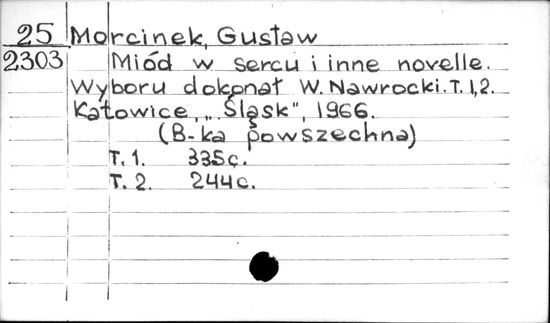 25 Morcinek, Gustaw
2303 Miód w sercu i inne novelle.
Wyboru dokonał W. Nawrocki. T. 1,2.
Katowice, „Śląsk", 1966.
(B-ka powszechna)
T. 1. 335c.
T. 2. 244c.